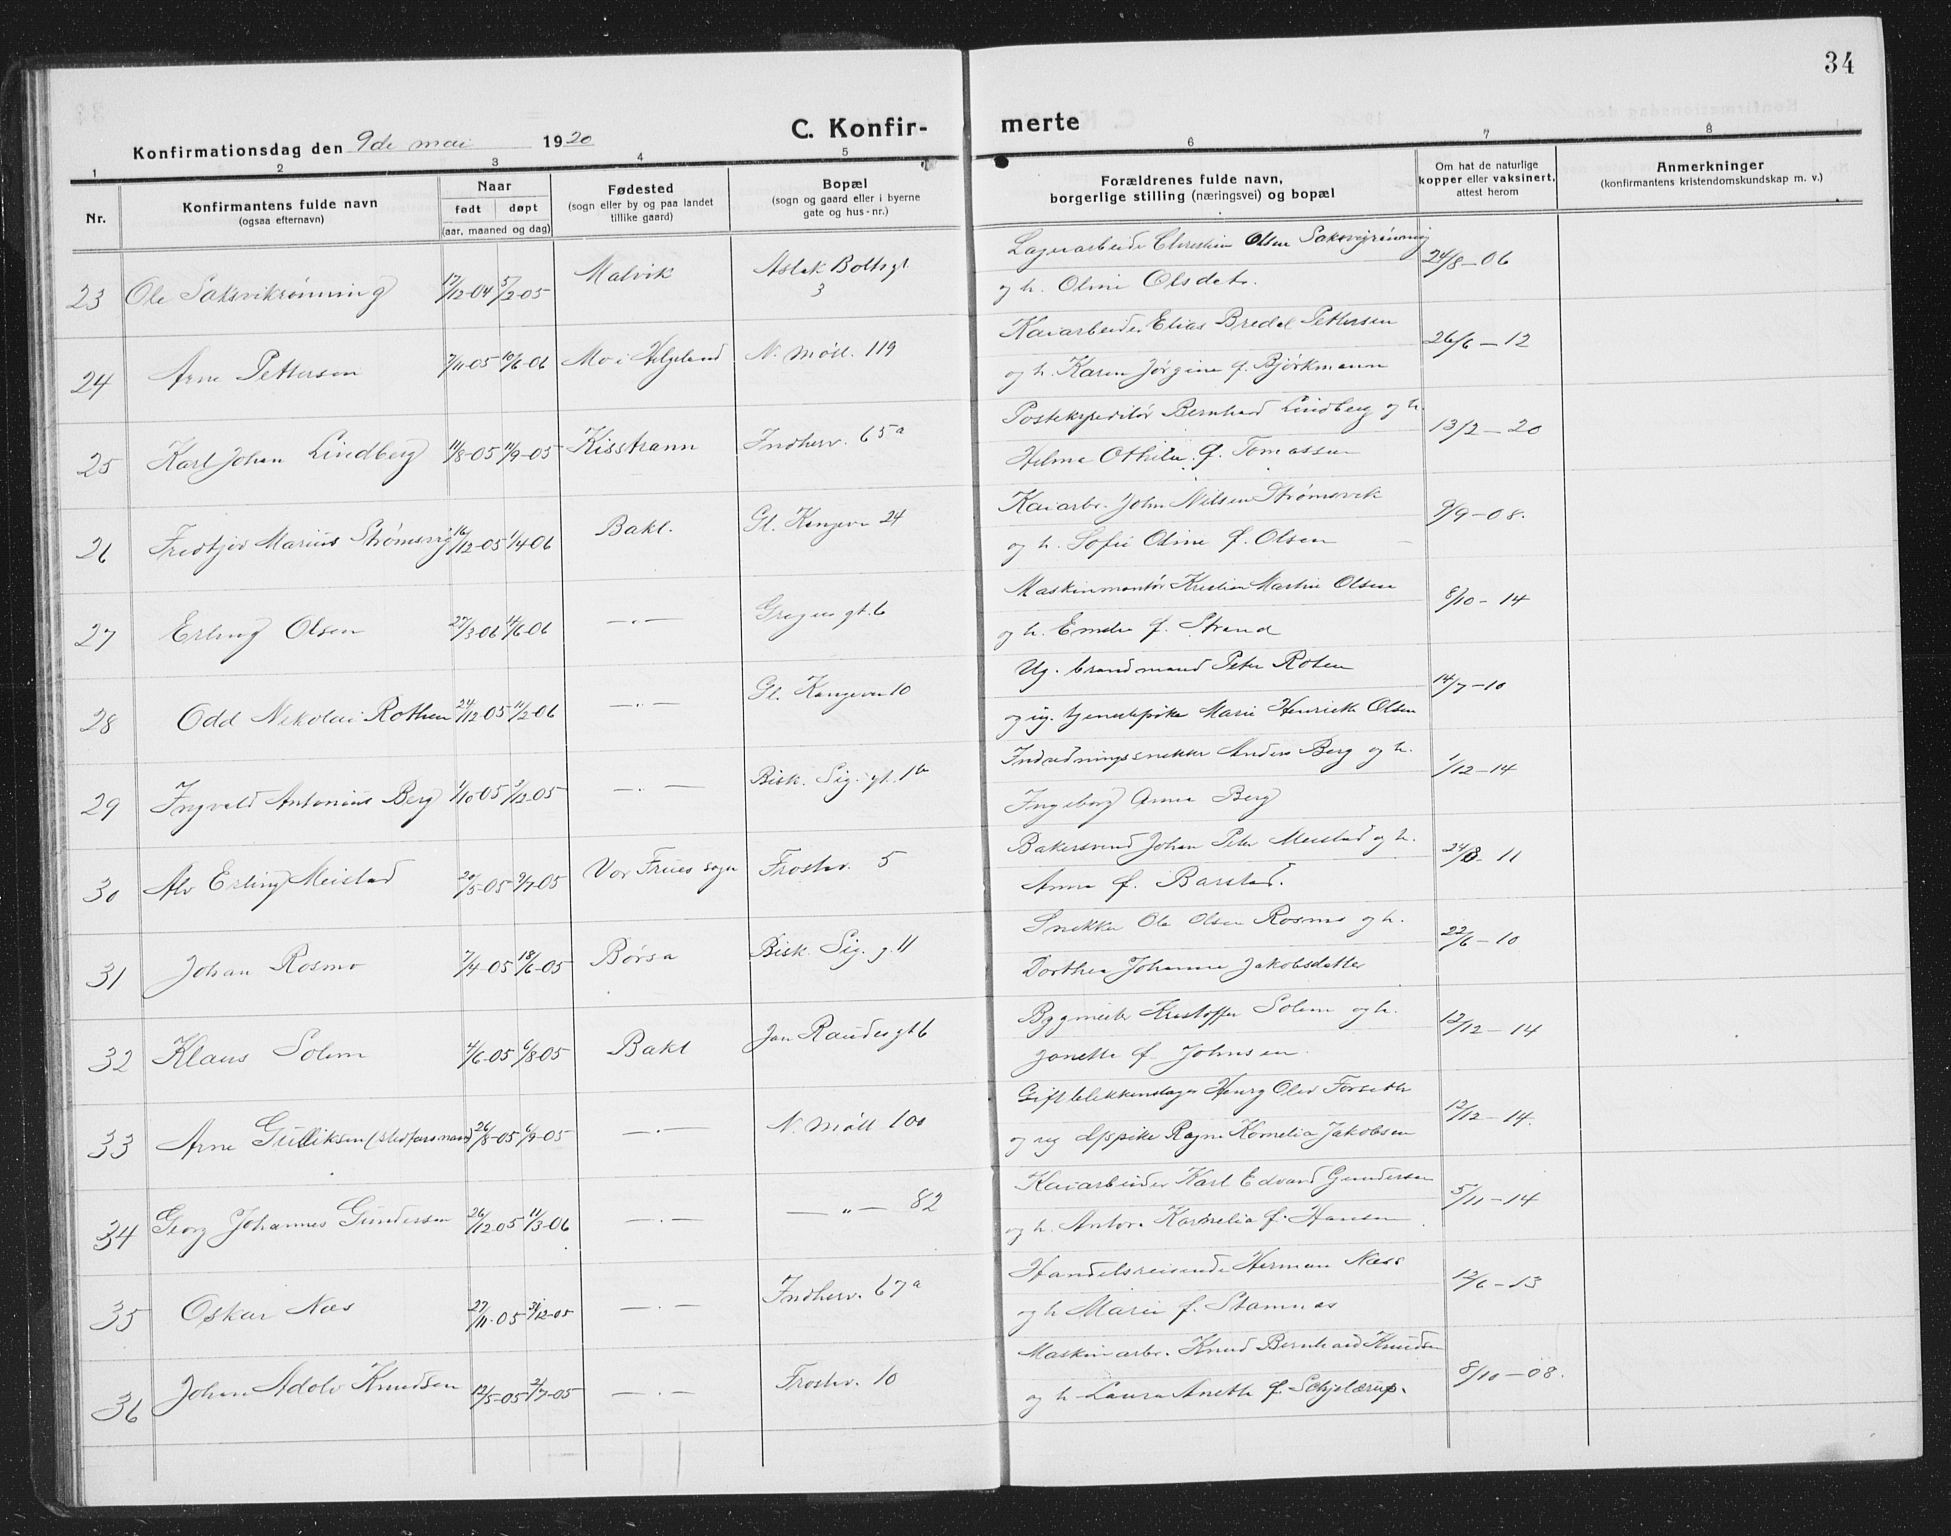 34
C. Konfir- merte
Konfirmationsdag den 9de mai 1920
1 2 3 4 5 6 7 8
Nr.
Konfirmantens fulde navn
(ogsaa efternavn)
Naar
født døpt
(aar, maaned og dag)
Fødested
(sogn eller by og paa landet
tillike gaard)
Bopæl
(sogn og gaard eller i byerne
gate og hus-nr.)
Forældrenes fulde navn,
borgerlige stilling (næringsvei) og bopæl
Om hat de naturlige
kopper eller vaksinert,
attest herom
Anmerkninger
(konfirmantens kristendomskundskap m. v.)
23 Ole Saksvikrønning 17/12-04 5/2-05 Malvik Aslak Boltsgt 3 Lagerarbeide Christian Olsen 24/8-06
og h. Oline Olsdat.
24 Arne Pettersen 7/11-05 10/6-06 Mo i Helgeland N. Møll. 119 Kaiarbeider Elias Bredel Pettersen 26/6-12
og h. Karen Jørgine f. Bjørkmann
25 Karl Johan Lindberg 11/8-05 11/9-05 Kisstrann Indherv. 65a Postekspeditør Bernhard Lindberg og h. 13/2-20
Helma Othilie f. Tomassen
26 Fredtjov Marius Strømsvig 16/12-05 1/4-06 Bakl. Gl. Kongevei 24 Kaiarbr. John Nilsen Strømsvik 9/9-08.
og h. Sofie Oline f. Olsen
27 Erling Olsen 27/3-06 4/6-06 —.— Gregus gt. 6 Maskinmontør Kristian Martin Olsen 8/10-14
og h. Emelie f. Strand
28 Odd Nikolai Rothen 24/12-05 11/2-06 —.— Gl. Kongevei 10 Ug. brandmand Peter Roten 14/7-10
og ug. tjenestepike Marie Henriette Olsen
29 Ingvald Antonius Berg 1/10-05 3/12-05 —.— Bisk. Sig. gt. Indredningssnekker Anders Berg og h. 1/12-14
Ingeborg Anna Berg
30 Alv Erling Meistad 20/5-05 9/7-05 Vor Frues sogn Frostav. 5 Bakersvend Johan Peter Meistad og h. 24/8-11
Anna f. Barstad.
31 Johan Rosmo 7/4-05 18/6-05 Børsa Bisk. Sig. g. 11 Snekker Ole Olsen Rosmo og h. 22/6-10
Dorthea Johanna Jakobsdatter
32 Klaus Solem 4/6-05 6/8-05 Bakl Jon Raudesgt 6 Bygmester Kristoffer Solem og h. 12/12-14
Janette f. Johnsen.
33 Arne Gulliksen (stedfarsnavn) 26/8-05 6/9-05 —.— N. Møll 100 Gift blikkenslager Henry Olav Forseth 12/12-14.
og ug Ragna Kornelia Jakobsen
34 Georg Johannes Gundersen 26/12-05 11/3-06 —.— —"— 82 Kaiarbeider Karl Edvard Gundersen 5/11-14
og h. Antora Kornelia f. Hansen
35 Oskar Næs 27/11-05 31/12-05 —.— Indherv. 67a Handelsreisende Herman Næss 12/6-13
og h Marie f. Stamnes
36 Johan Adolv Knudsen 12/5-05 2/7-05 —.— Frostav. 10 Maskinarbr. Knud Bernhard Knudsen 8/10-08.
og h. Laura Anette f. Schjelderup.